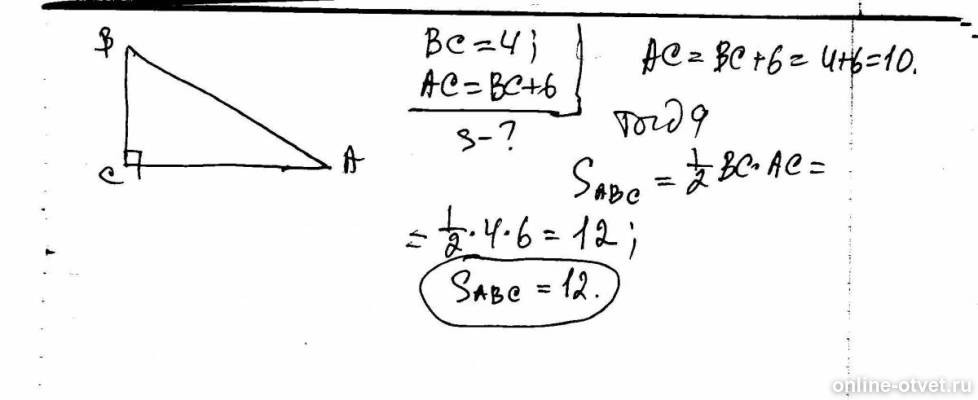 B
C
A
BC = 4;
AC = BC + 6
S - ?
AC = BC + 6 = 4 + 6 = 10.
Тогда
S_ABC = 1/2 BC · AC =
= 1/2 · 4 · 6 = 12;
S_ABC = 12.
online-otvet.ru